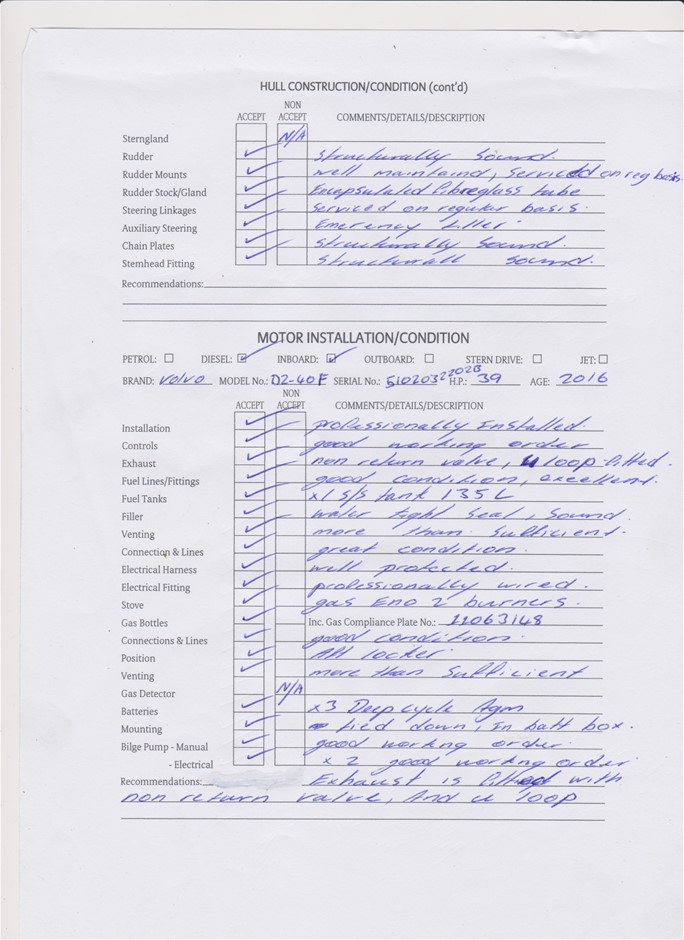 HULL CONSTRUCTION/CONDITION (cont'd)
ACCEPT NON ACCEPT COMMENTS/DETAILS/DESCRIPTION
Sterngland N/A
Rudder ✓ structurally sound.
Rudder Mounts ✓ well maintaind, serviced on reg basis
Rudder Stock/Gland ✓ Encapsulated fibreglass tube
Steering Linkages ✓ serviced on regular basis.
Auxiliary Steering ✓ Emergency tiller
Chain Plates ✓ structurally sound.
Stemhead Fitting ✓ structurall sound.
Recommendations:
MOTOR INSTALLATION/CONDITION
PETROL: ☐ DIESEL: ☑ INBOARD: ☑ OUTBOARD: ☐ STERN DRIVE: ☐ JET: ☐
BRAND: Volvo MODEL No.: D2-40F SERIAL No.: H.P.: 39 AGE: 2016
ACCEPT NON ACCEPT COMMENTS/DETAILS/DESCRIPTION
Installation ✓ professionally Installed.
Controls ✓ good working order
Exhaust ✓ non return valve, u loop fitted.
Fuel Lines/Fittings ✓ good condition, excellent.
Fuel Tanks ✓ x1 s/s tank 135L
Filler ✓ water tight seal, sound.
Venting ✓ more than sufficient.
Connection & Lines ✓ great condition.
Electrical Harness ✓ well protected.
Electrical Fitting ✓ professionally wired.
Stove ✓ gas Eno 2 burners.
Gas Bottles ✓ Inc. Gas Compliance Plate No.: 11063148
Connections & Lines ✓ good condition.
Position ✓ Aft locker
Venting ✓ more than sufficient
Gas Detector N/A
Batteries ✓ x3 Deep cycle Agm
Mounting ✓ tied down, In batt box.
Bilge Pump - Manual ✓ good working order.
- Electrical ✓ x 2 good working order
Recommendations: Exhaust is fitted with
non return valve, And u loop